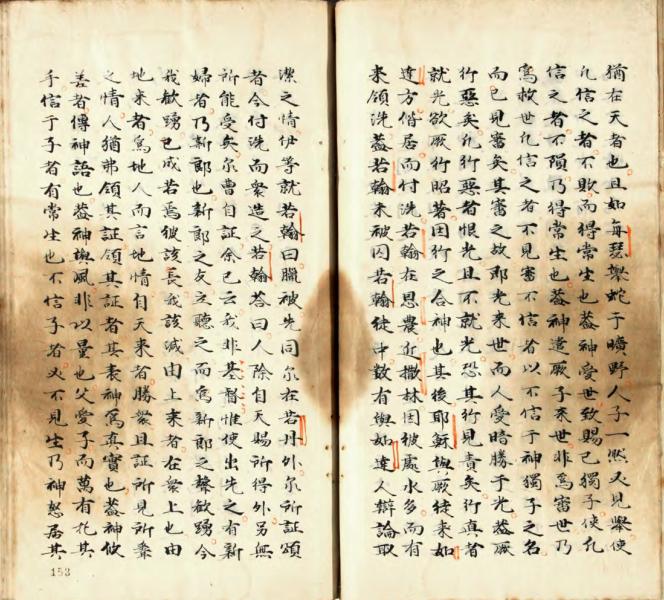 猶在天者也且如每瑟舉蛇于曠野人子一然又見舉使
凡信之者不敗而得常生也蓋神愛世致賜己獨子使凡
信之者不隕乃得常生也蓋神遣厥子來世非為審世乃
為救世凡信之者不見審不信者以不信于神獨子之名
而已見審矣其審之故即光來世而人愛暗勝于光蓋厥
行惡矣凡行惡者恨光且不就光恐其行見責矣行真者
就光欲厥行昭著因行之合神也其後耶穌與厥徒來如
達方偕居而付洗若翰在恩農近撒林因彼處水多而有
來領洗蓋若翰未被囚若翰徒中數有與如達人辯論取
潔之情伊等就若翰曰臘被先同尔在若丹外尔所証頌
者今付洗而衆造之若翰荅曰人除自天賜所得外另無
所能受矣尔曹自証余已云我非基督惟使出先之有新
婦者乃新郎也新郎之友立聽之而為新郎之聲歡踴今
我歡踴已成若焉彼該長我該減由上來者在衆上也由
地來者為地人而言地情自天來者勝衆且証所見所聞
之情人猶弗領其証領其証者其表神為真實也蓋神攸
善者傳神語也蓋神與風非以量也父愛子而萬有托其
手信于子者有常生也不信子者必不見生乃神怒居其
153